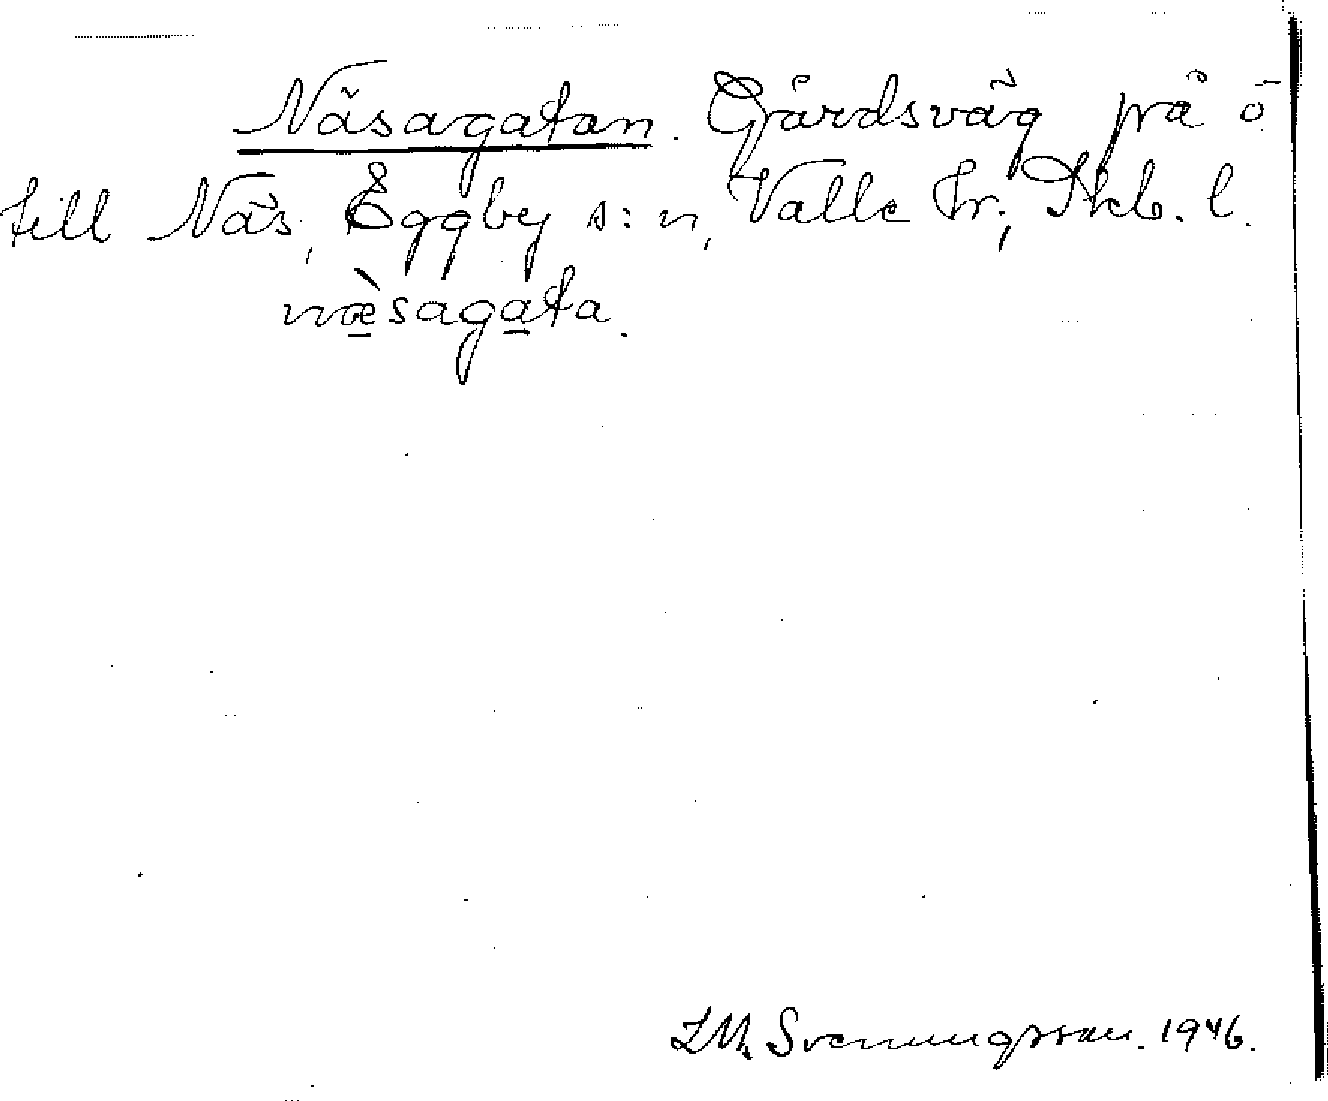 Näsagatan. Gårdsväg på ö.
till Näs, Eggby s:n, Valle hr; Skb. l.
næ̀sagata.
L.M. Svenningsson. 1946.